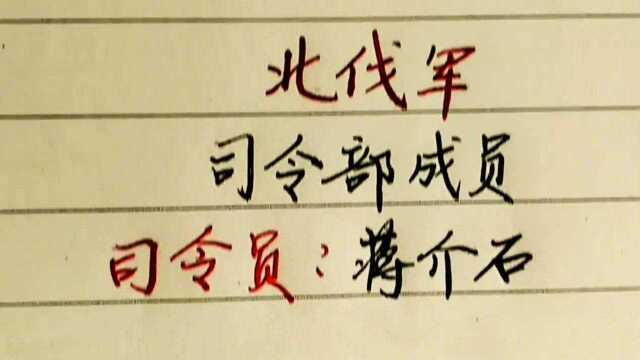 北伐军
司令部成员
司令员：蒋介石